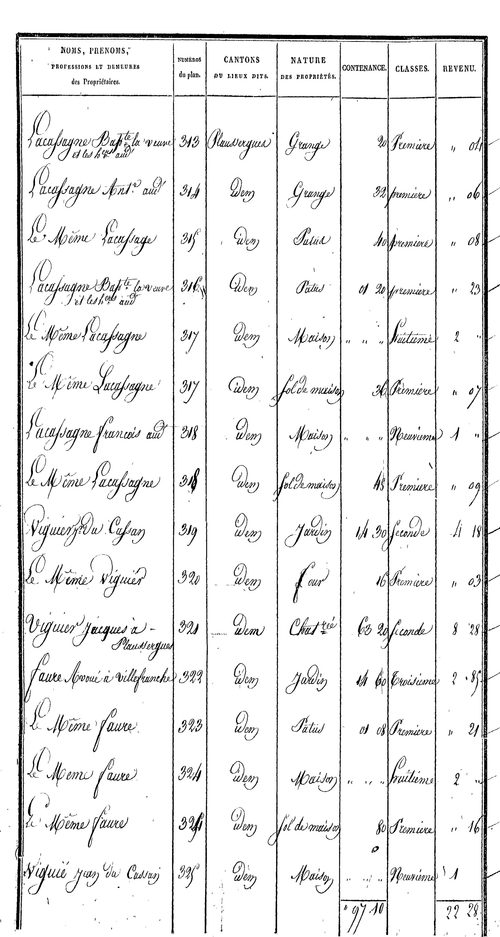 NOMS, PRENOMS, PROFESSIONS ET DEMEURES des Propriétaires. NUMEROS du plan. CANTONS OU LIEUX DITS. NATURE DES PROPRIÉTÉS. CONTENANCE. CLASSES. REVENU.
Lacassagne Bapte la veuve 313 Plaussergues Grange 20 Première „ 04
et les hers aud
Lacassagne Ant. aud 314 idem Grange 32 première „ 06
Le Même Lacassage 315 idem Patus 40 première „ 08
Lacassagne Bapte la veuve 316 idem Patus 01 20 première „ 23
et les hers aud
Le Même Lacassagne 317 idem Maison „ „ „ huitième 2 „
Le Même Lacassagne 317 idem Sol de maison 36 Première „ 07
Lacassagne francois aud 318 idem Maison „ „ „ Neuvième 1 „
Le Même Lacassagne 318 idem Sol de maison 48 Première „ 09
Viguier du Cassan 319 idem Jardin 14 30 Seconde 4 18
Le Même Viguier 320 idem four 16 Première „ 03
Viguier Jacques à 321 idem Chatrée 63 20 Seconde 8 28
Plaussergues
faure Avoué à villefranche 322 idem Jardin 14 60 Troisième 2 85
Le Même faure 323 idem Patus 01 08 Première „ 21
Le Meme faure 324 idem Maison „ „ „ huitième 2 „
Le Même faure 324 idem Sol de maison 80 Première „ 16
Viguié Jean du Cassan 325 idem Maison „ „ „ Neuvième 1
„ 97 10 22 28